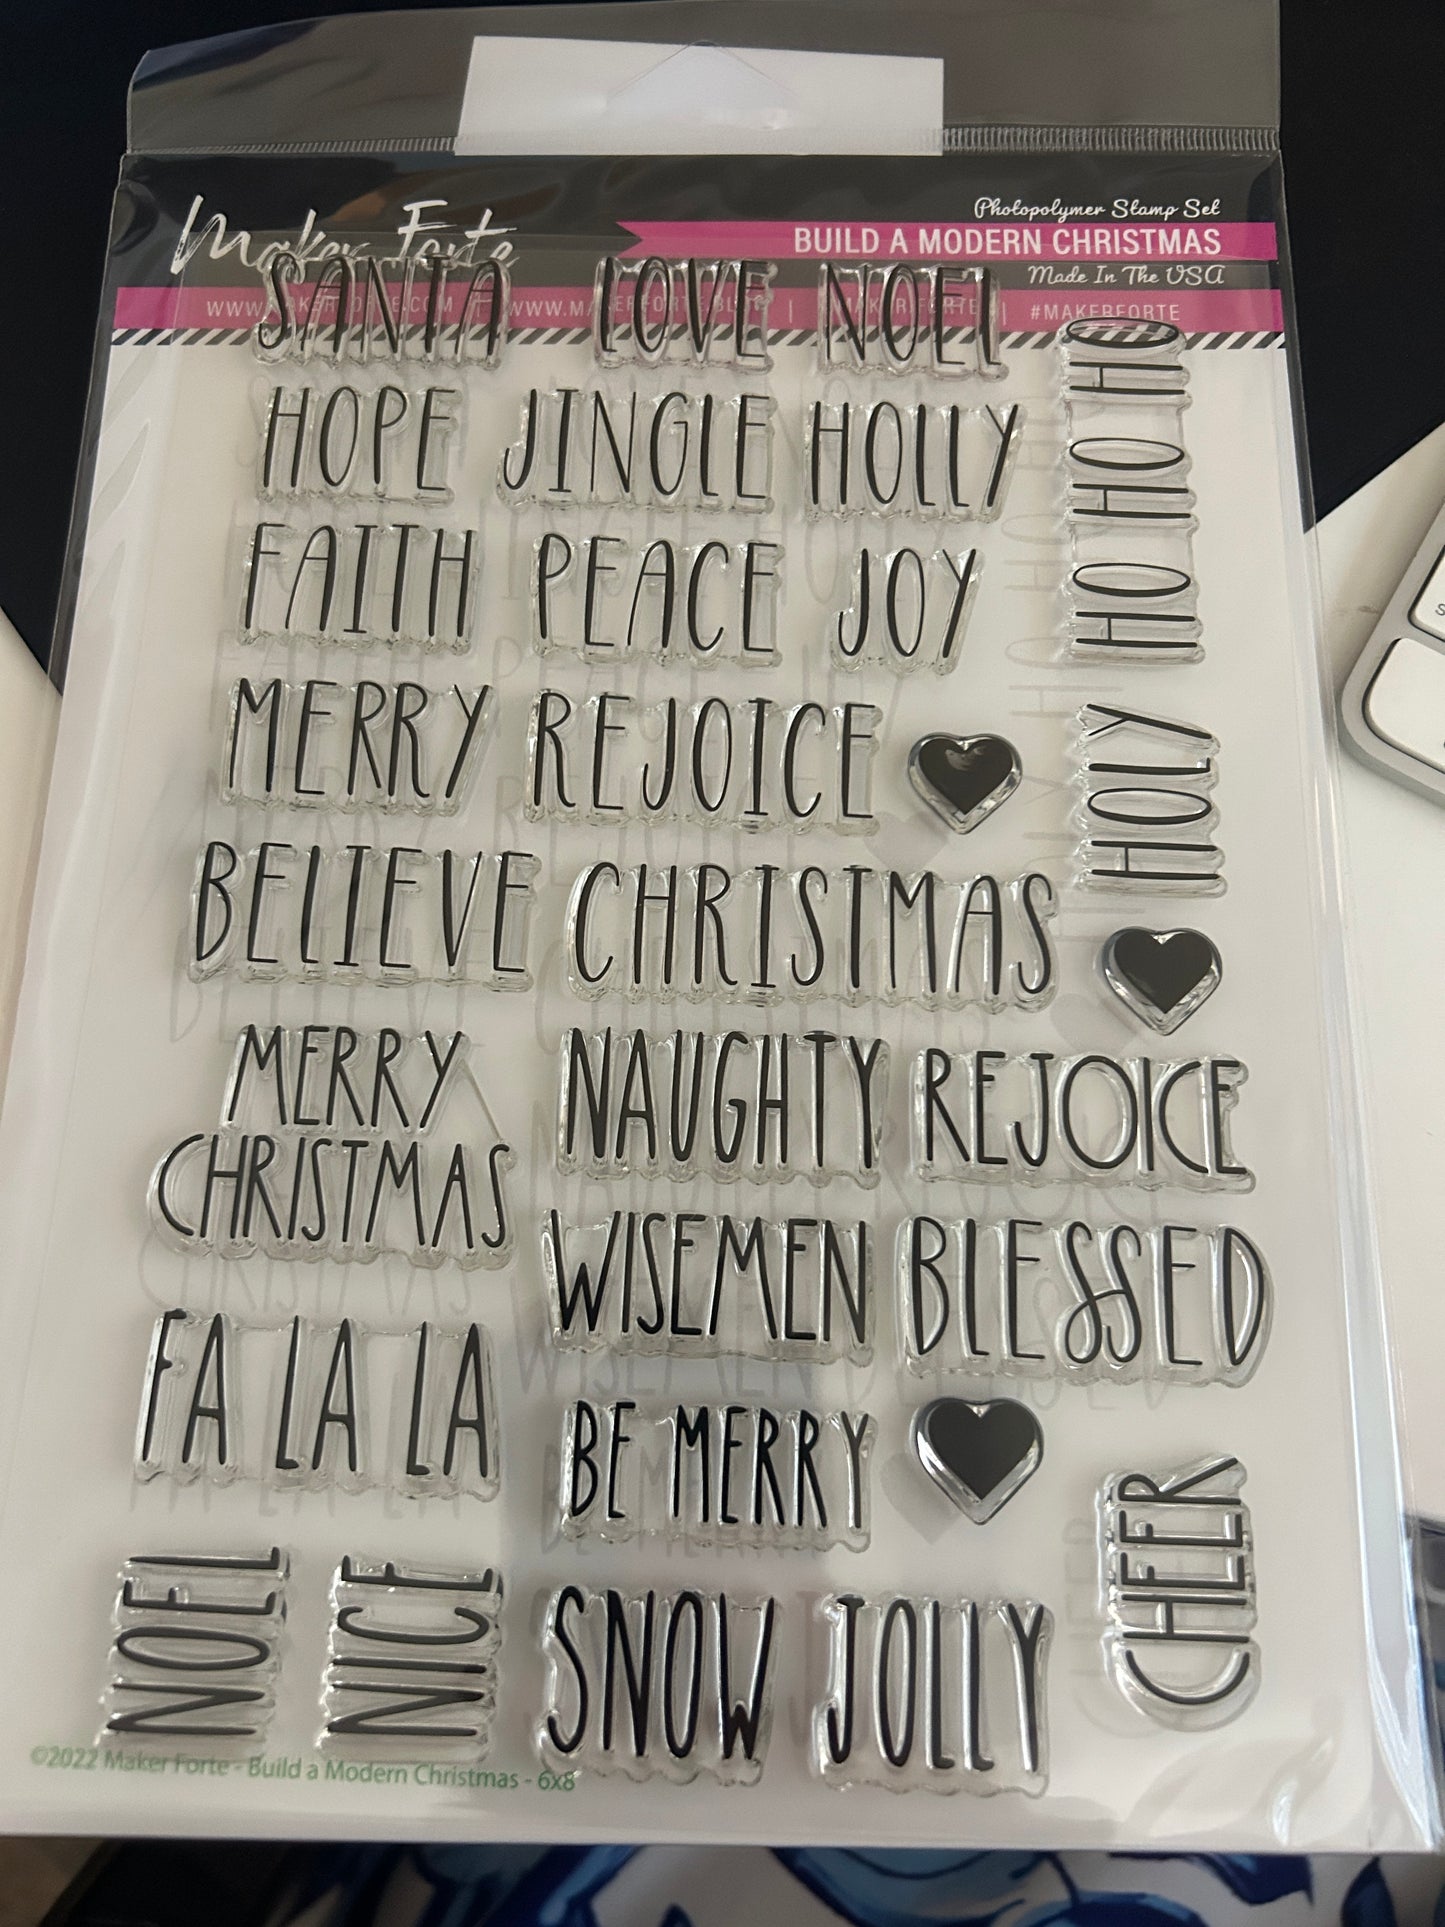 Maker Forte
Photopolymer Stamp Set
BUILD A MODERN CHRISTMAS
Made In The USA
WWW.MAKERFORTE.COM | WWW.MAKERFORTE.BLOG | MAKER FORTE | #MAKERFORTE
SANTA LOVE NOEL
HO HO HO
HOPE JINGLE HOLLY
FAITH PEACE JOY
MERRY REJOICE
HOLY
BELIEVE CHRISTMAS
MERRY
CHRISTMAS
NAUGHTY REJOICE
WISEMEN BLESSED
FA LA LA
BE MERRY
CHEER
NOEL NICE SNOW JOLLY
©2022 Maker Forte - Build a Modern Christmas - 6x8